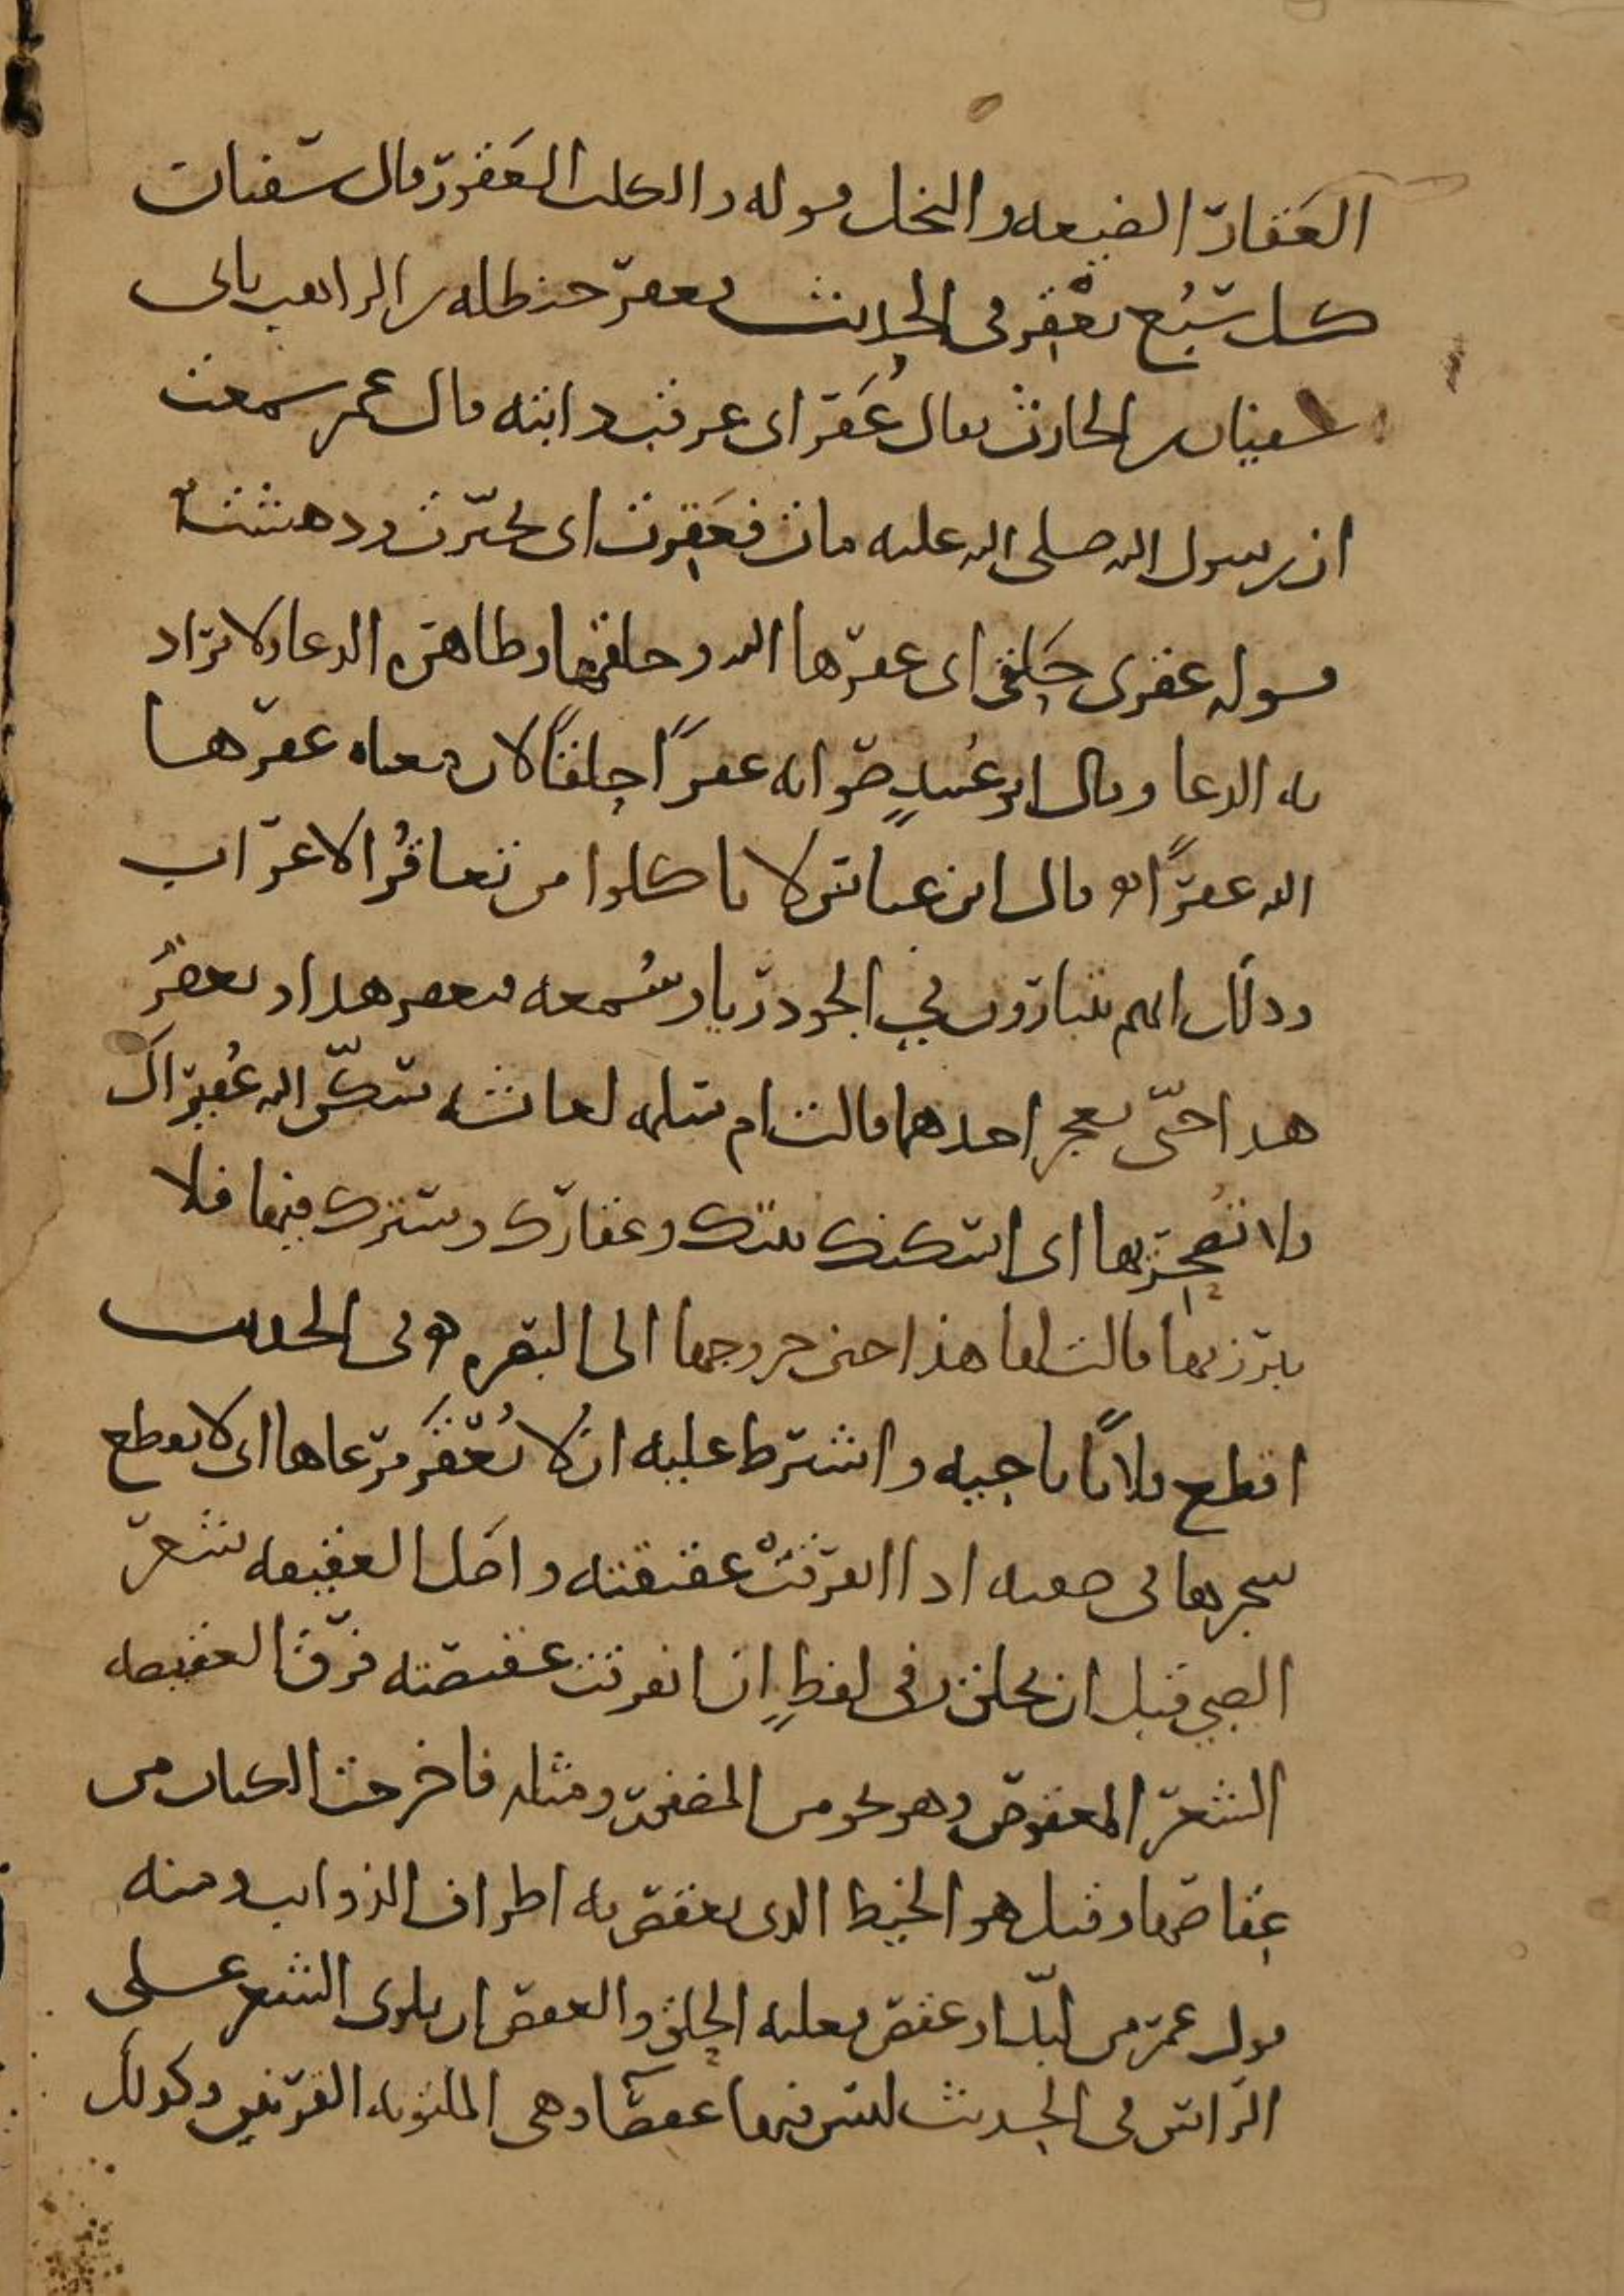 العَقار الضيعه والنخل قوله والكلب العَقور قال سفيان
كل سَبُع يعْقِر في الحديث فعقر حنظله الراهب بابي
سفيان بن الحارث يقال عُقَر اى عرقب دابته قال عمر سمعت
ان رسول الله صلى الله عليه مات فعَقِرت اى تحيّرت ودهشت
قوله عقرى حَلقى اى عقرها الله وحلقها وظاهره الدعا ولا يراد
به الدعا وقال ابو عُبيدٍ صوابه عقراً حلقاً لان معناه عقرها
الله عقراً ه قال ابن عباس لا تاكلوا من تعاقُر الاعراب
وذلك انهم يتبارون في الجود ريا وسُمعه فيعقر هذا ويعقرُ
هذا حتّى يعجز احدهما قالت ام سلمه لعائشه سكّن الله عُقيراكَ
فلا تصحِريها اى اسكنك بيتك وعقارك وسترك فيها فلا
تبرزيها قالت لها هذا حين خروجها الى البصره ه وفي الحديث
اقطع فلاناً ناحيه واشترط عليه ان لا يُعْقَر مرعاها اى لا يقطع
شجرها في صفته اذا انفرقتْ عقيقته واصَل العقيقه شعر
الصبي قبل ان يحلق وفي لفظٍ ان انفرقت عقيصته فرّق العقيصه
الشعر المعقوص وهو نحو من المضفور ومثله فاخرجت الكتاب من
عِقاصها وقيل هو الخيط الذى يعقص به اطراف الذوايب ومنه
قول عمر من لبّد او عقص فعليه الحلق والعقص ان يلوى الشعر على
الراس في الحديث ليس فيها عقصآ وهي الملتويه القرنين وكذلك